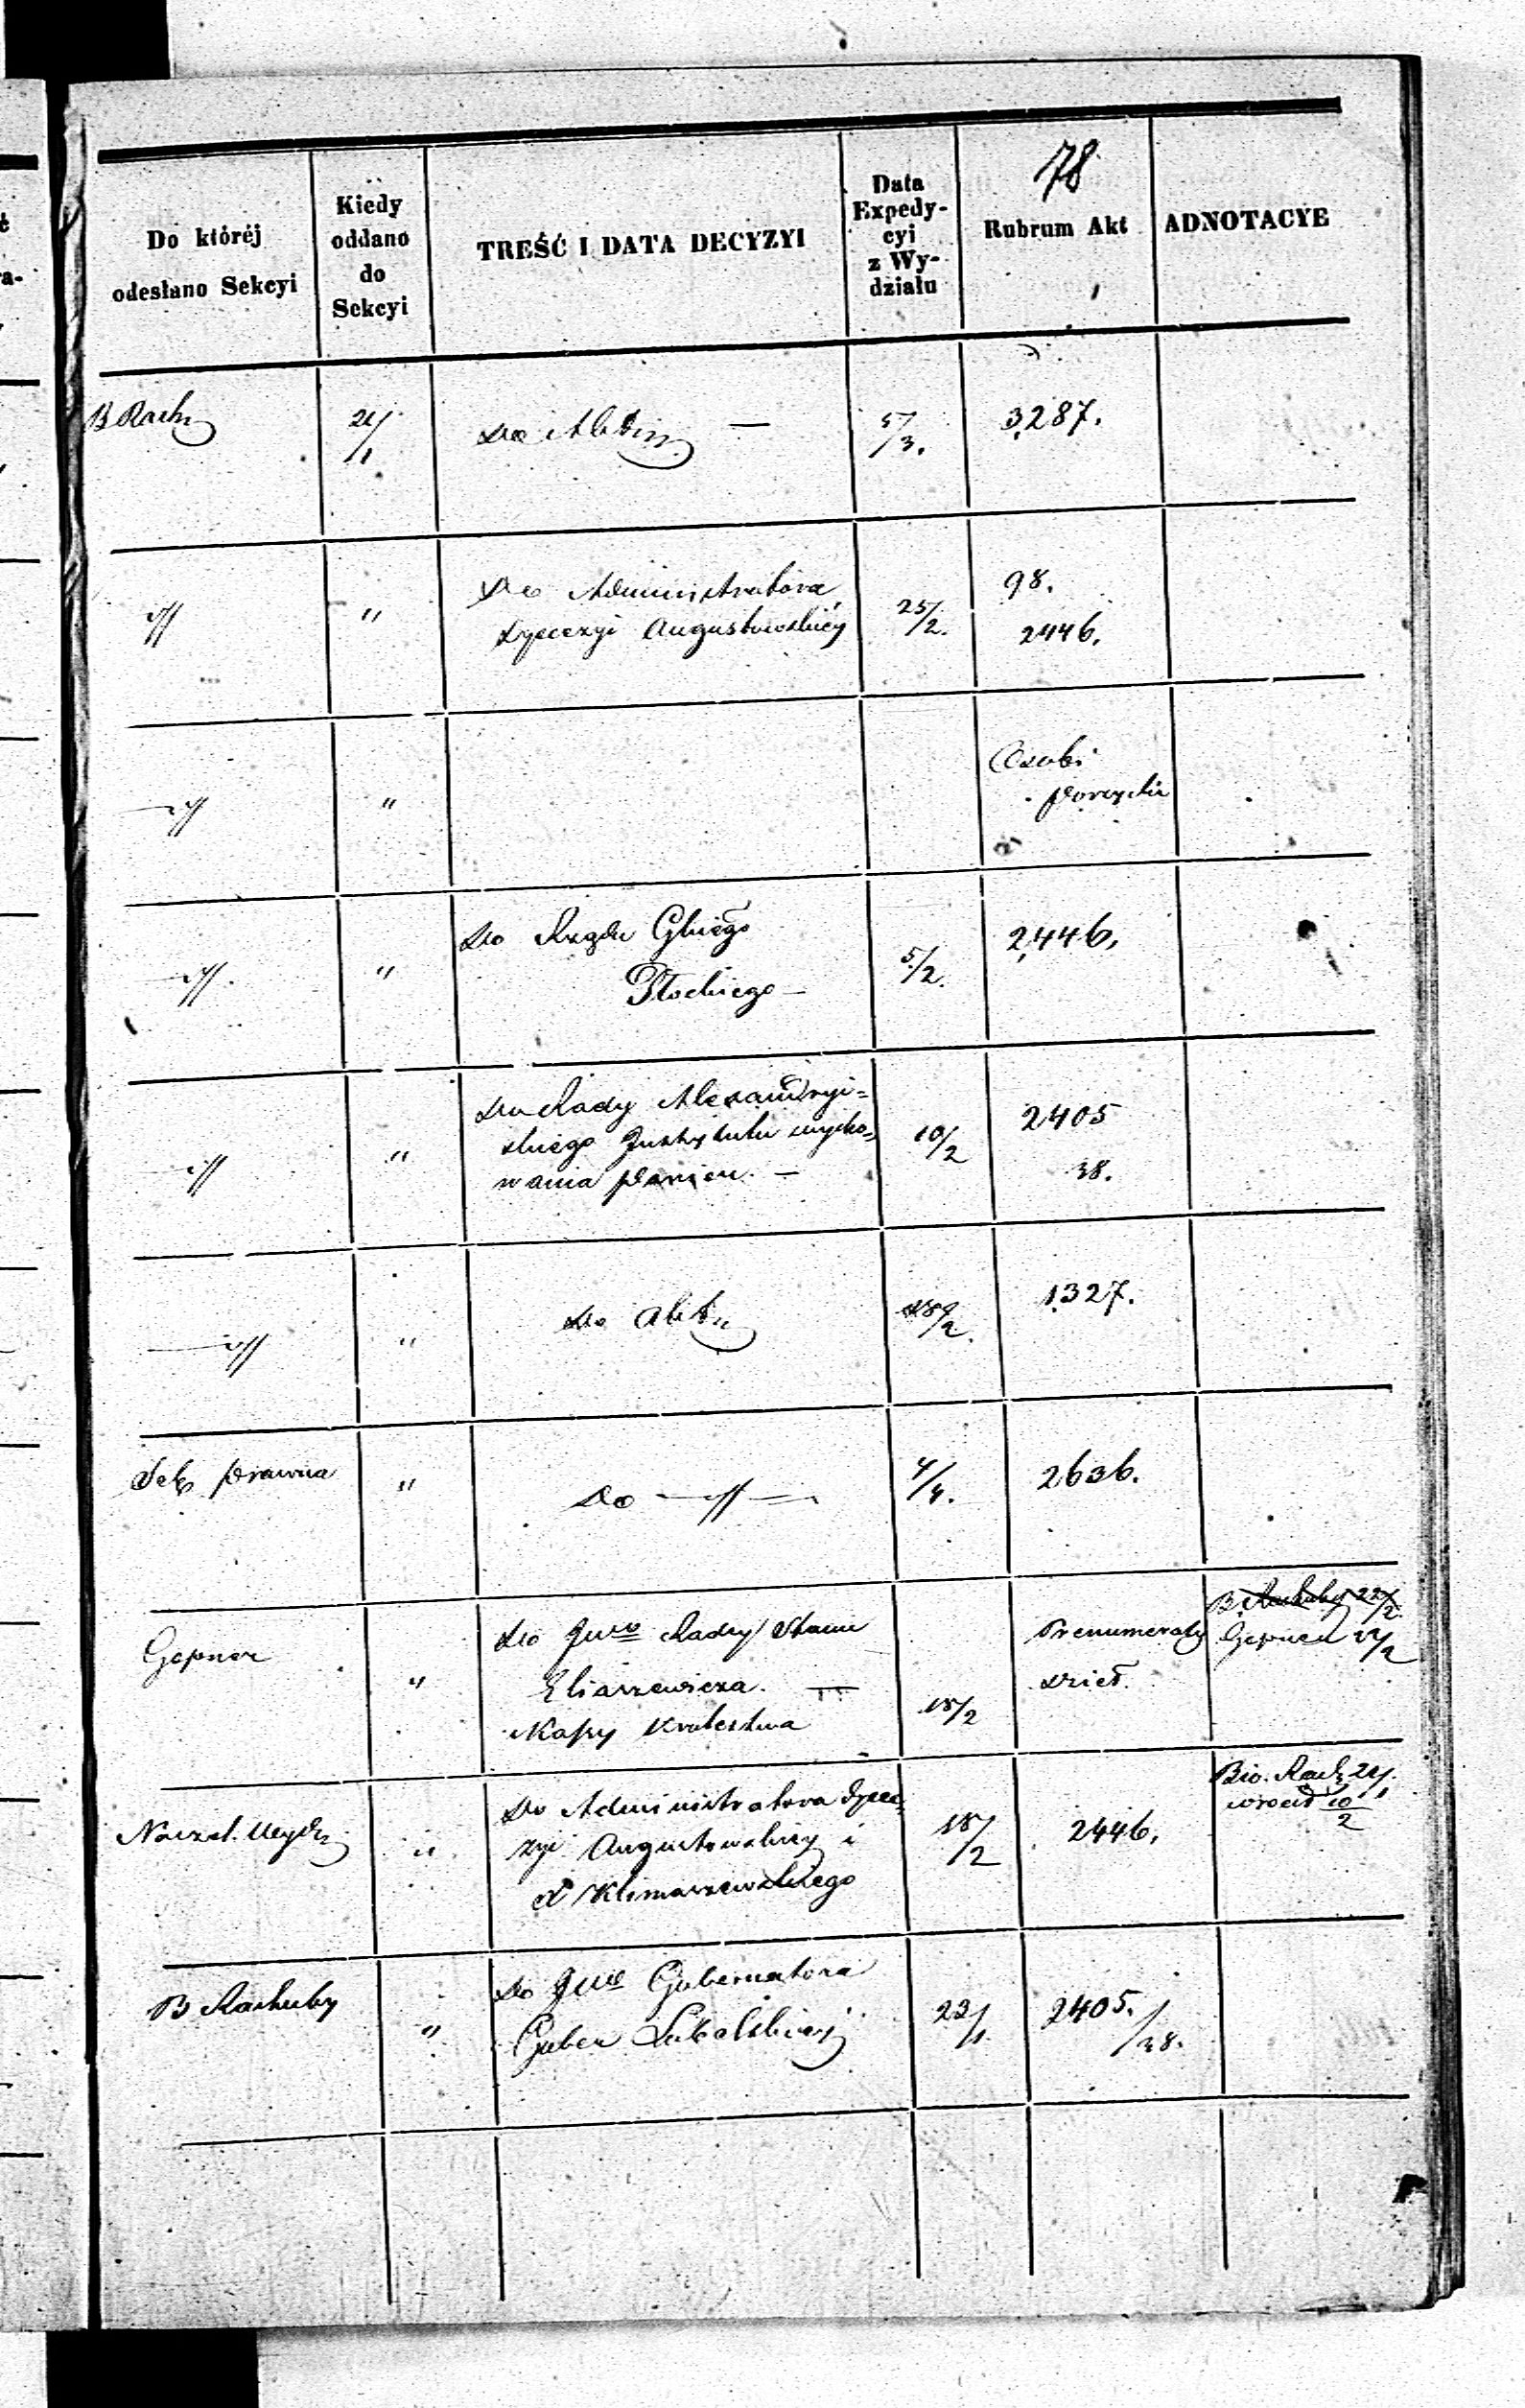 78
Do któréj
odesłano Sekcyi
Kiedy
oddano
do
Sekcyi
TREŚĆ I DATA DECYZYI
Data
Expedy-
cyi
z Wy-
działu
Rubrum Akt
ADNOTACYE
B Rach
21/1
Do Akt
5/3.
3287.
"
Do Administratora
Dyecezyi Augustowskiéj
25/2.
98.
2446.
"
Osobi
"
Do Rządu Gbniego
Płockiego —
5/2.
2446.
"
Do Rady Alexandryi=
skiego Instytutu wycho=
wania Panien. —
10/2
2405
38.
"
Do Akt
1327.
Sek Prawna
"
Do
4/4.
2636.
Gepner
"
Do JWo Radcy Stanu
Eliaszewicza. —
Mapy Królestwa
18/2
Prenumeraty
Dzieł.
B. Rachuby 22/2.
Gepner
Naczel. Wydz
"
Do Administratora Dyece
zyi Augustowskiéj i
X Klimaszewskiego
18/2
2446.
Bio. Rach 21/1
wrócił 10/2
B Rachuby
"
Do JWo Gubernatora
Guber Lubelskiéj
23/1
2405./38.